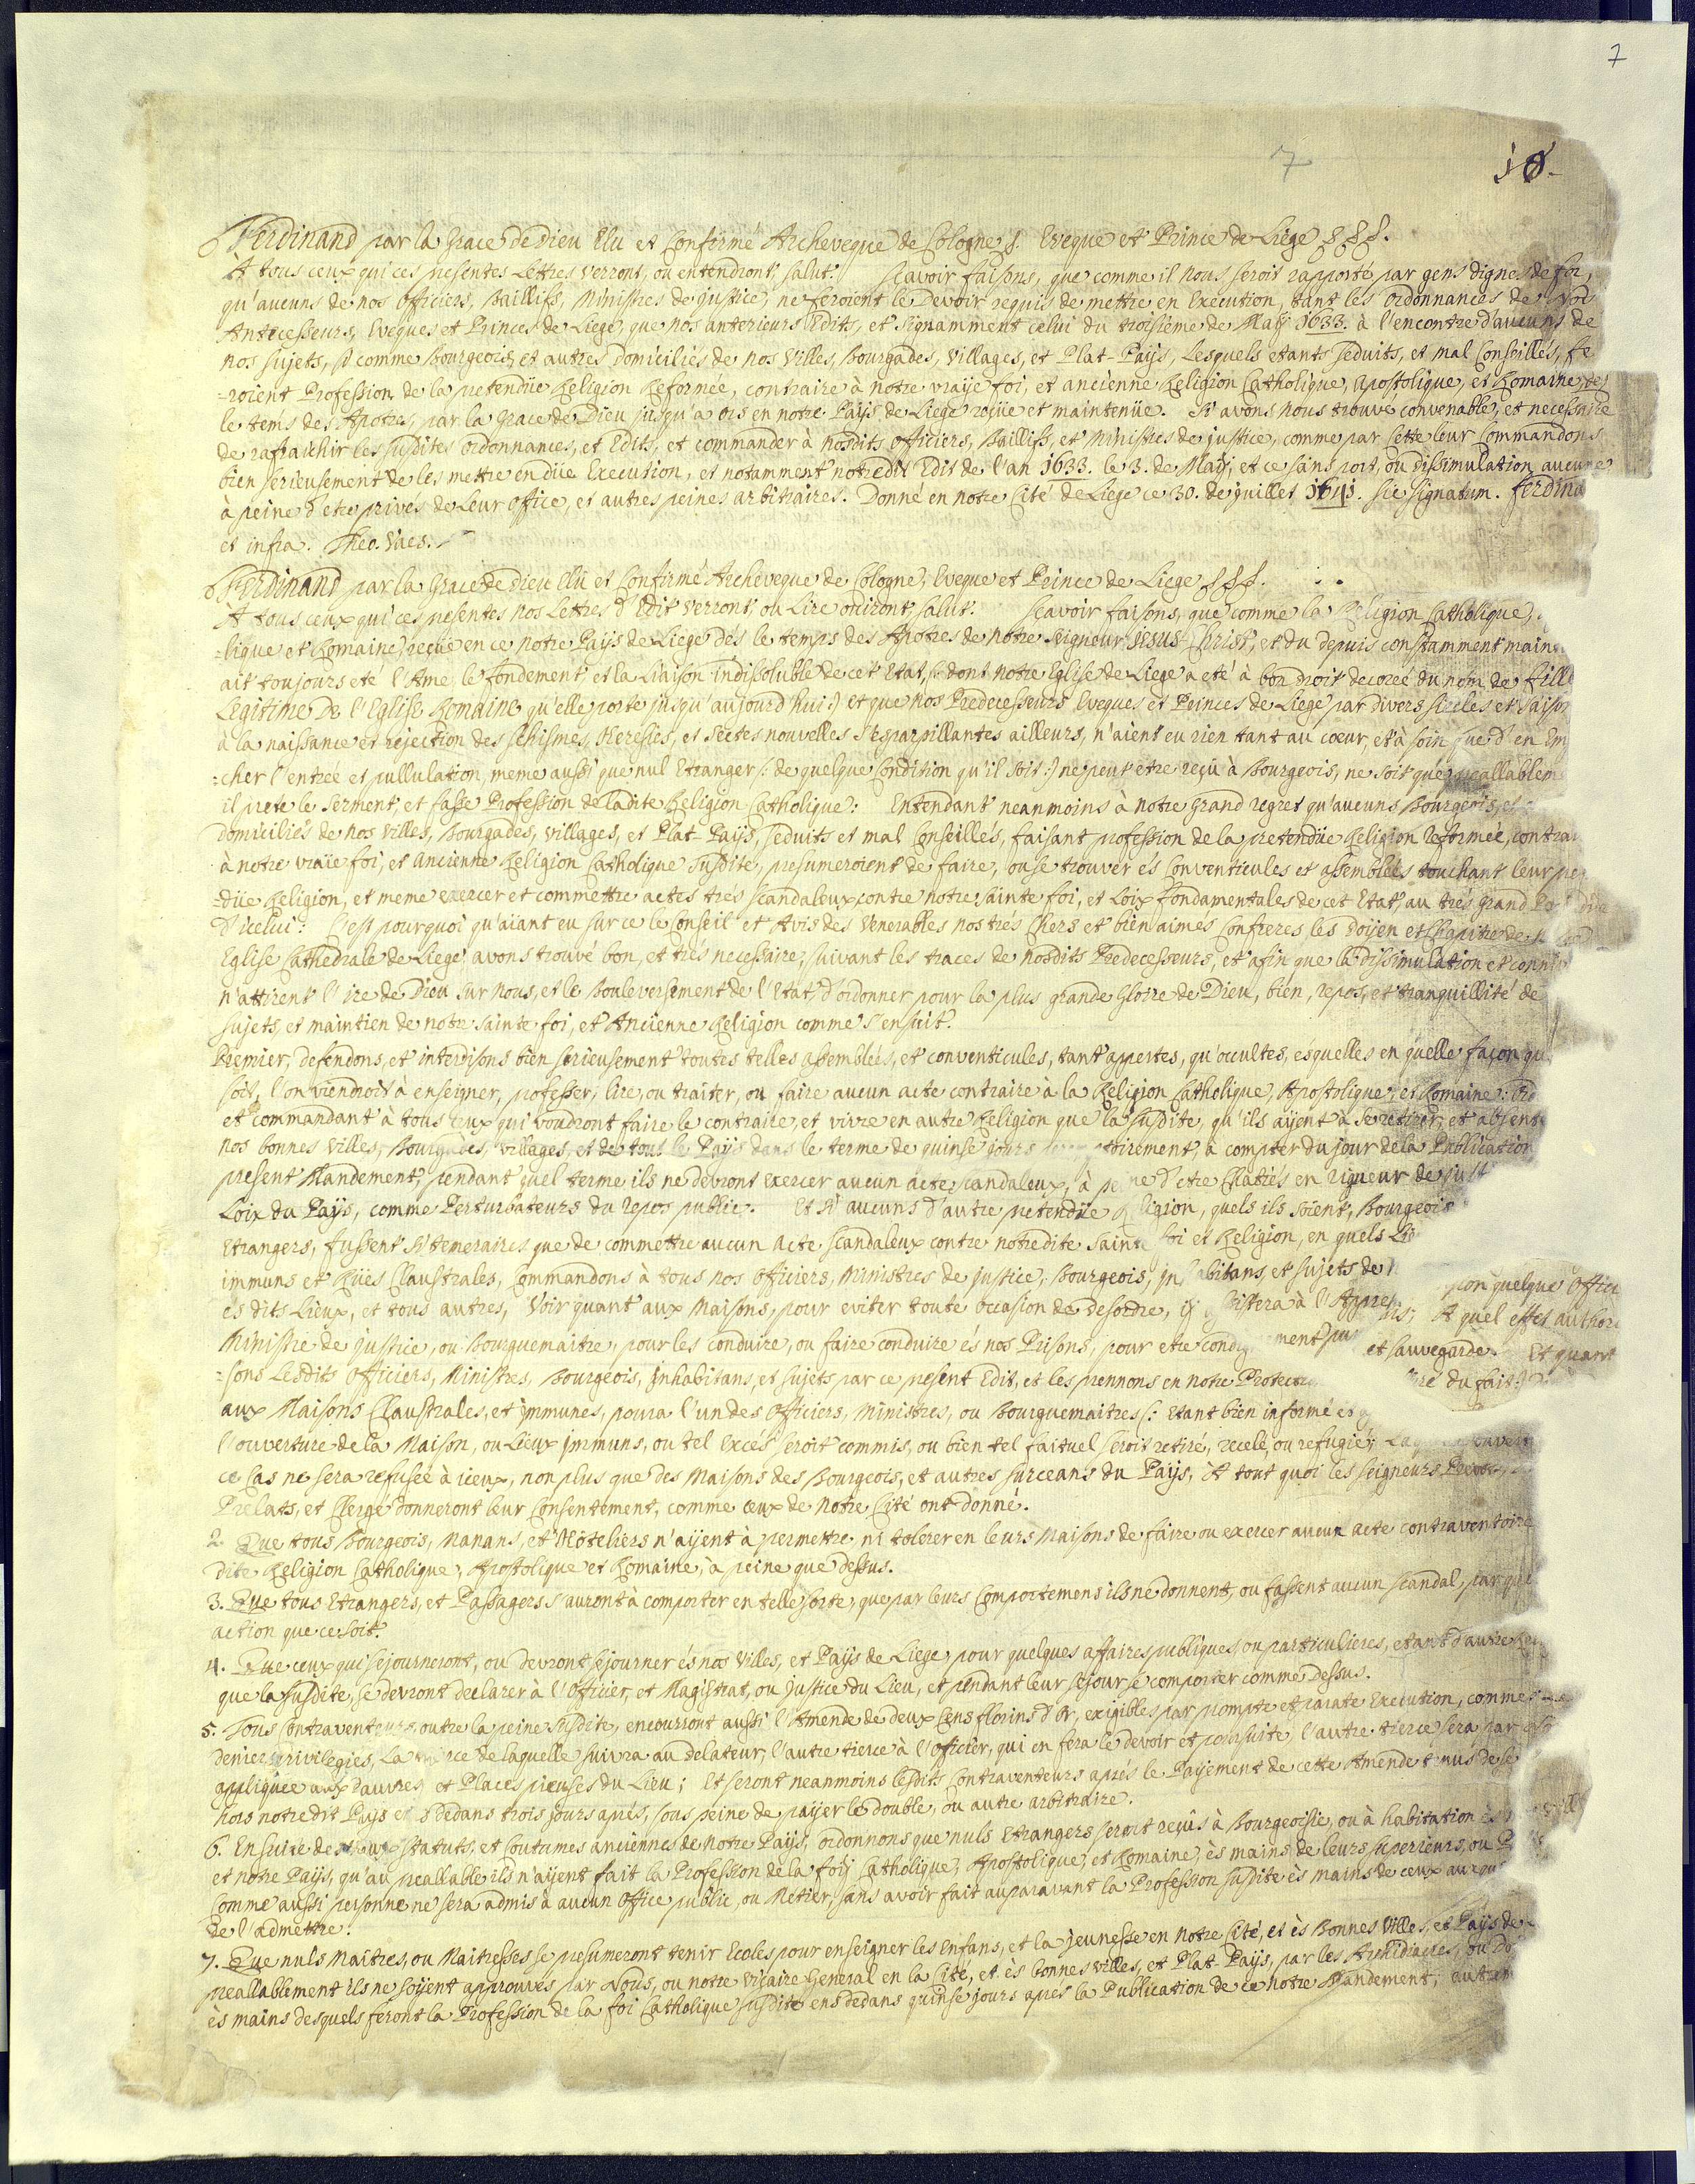 7
7
10.
Ferdinand par la Grace de Dieu Elu et Confirmé Archeveque de Cologne §. Eveque et Prince de Liége §§§.
A tous ceux qui ces presentes Lettres verront, ou entendront, salut. Sçavoir faisons, que comme il nous seroit rapporté par gens dignes de foi,
qu'aucuns de nos Officiers, Baillifs, Ministres de justice, ne feroient le Devoir requis de mettre en Execution, tant les ordonnances de nos
Antecesseurs, Eveques et Princes de Liege, que nos anterieurs Edits, et signamment celui du troisiéme de Maÿ 1633. à l'encontre d'aucuns de
nos sujets, si comme Bourgeois, et autres Domiciliés de nos Villes, Bourgades, Villages, et Plat-Païs, Lesquels etants seduits, et mal Conseillés, fe
=roient Profession de la pretendüe Religion Reformée, contraire à notre vraÿe foi, et ancienne Religion Catholique, Apostolique, et Romaine, des
le tems des Apotres, par la Grace de Dieu jusqu'a ors en notre Païs de Liege reçüe et maintenüe. Si avons nous trouvé convenable, et necessaire
de rafraichir les susdites ordonnances, et Edits, et commander à nosdits officiers, Baillifs, et Ministres de justice, comme par Cette leur Commandons
bien serieusement de les mettre en düe Execution, et notamment notredit Edit de l'an 1633. le 3. de Maÿ, et ce sans port, ou dissimulation aucune
à peine d'etre privés de Leur office, et autres peines arbitraires. Donné en notre Cité de Liege ce 30. de juillet 1641. sic signatum. Ferdina
et infra. Theo. Vaes.
Ferdinand par la Grace de Dieu Elü et Confirmé Archeveque de Cologne, Eveque et Prince de Liege §§§.
À tous ceux qui ces presentes nos Lettres d'Edit verront, ou Lire oüiront, salut. Sçavoir faisons, que comme la Religion Catholique,
=lique et Romaine, reçüe en ce notre Païs de Liege dés le temps des Apotres de notre Seigneur Jesus-Christ, et du depuis constamment main
ait toujours eté l'Ame, le fondement et la Liaison indissoluble de cet Etat, (: dont notre Eglise de Liege a eté à bon droit decorée du nom de fille
Legitime De l'Eglise Romaine qu'elle porte jusqu'aujourd'hui :) et que nos Predecesseurs Eveques et Princes de Liege par divers siecles et saison
à la naissance et rejection des schismes, Heresies, et sectes nouvelles s'esparpillantes ailleurs, n'aient eu rien tant au cœur, et à soin que d'en Em
=cher l'entrée et pullulation, meme aussi que nul Etranger (: de quelque Condition qu'il soit :) ne peut etre reçu à Bourgeois, ne soit que preallablem
il prete le serment et fasse Profession de ladite Religion Catholique: Entendant neanmoins à notre Grand regret qu'aucuns Bourgeois, et
domiciliés de nos villes, Bourgades, villages, et Plat-Païs, seduits et mal Conseillés, faisant profession de la pretendüe Religion reformée, contrai
à notre vraïe foi, et ancienne Religion Catholique susdite, presumeroient de faire, ou se trouver és Conventicules et assemblées touchant leur pre
=düe Religion, et meme exercer et commettre actes trés scandaleux contre notre sainte foi, et Loix fondamentales de cet Etat, au trés grand
D'icelui: C'est pourquoi qu'aiant eu sur ce le Conseil et Avis des venerables nos trés Chers et bien aimés Confreres les Doïen et Chapitre de
Eglise Cathedrale de Liege, avons trouvé bon, et trés necessaire, suivant les traces de nosdits Predecesseurs, et afin que la dissimulation et conni
n'attirent l'ire de Dieu sur nous, et le Bouleversement de l'Etat, d'ordonner pour la plus grande Gloire de Dieu, bien, repos, et tranquillité de
sujets, et maintien de notre sainte foi, et Ancienne Religion comme s'ensuit.
Premier, defendons, et interdisons bien serieusement toutes telles assemblées, et conventicules, tant appertes, qu'occultes, esquelles en quelle façon qu
soit, l'on viendroit à enseigner, professer, lire, ou traiter, ou faire aucun acte contraire à la Religion Catholique, Apostolique, et Romaine: Ord
et commandant à tous ceux qui voudront faire le contraire, et vivre en autre Religion que la susdite, qu'ils aÿent à se retirer, et absente
nos bonnes villes, Bourgades, villages, et de tout le Païs dans le terme de quinse jours à compter du jour de la Publication
present Mandement, pendant quel terme ils ne devront exercer aucun acte scandaleux, à peine d'etre Chatiés en rigueur de just
Loix du Païs, comme Perturbateurs du repos public. Et si aucuns d'autre pretendüe Religion, quels ils soient, Bourgeois
Etrangers, fussent si temeraires que de commettre aucun Acte scandaleux contre notredite sainte foi et Religion, en quels Lie
immuns et Rües Claustrales, Commandons à tous nos officiers, Ministres de justice, Bourgeois, inhabitans, et sujets de
és dits Lieux, et tous autres, voir quant aux Maisons, pour eviter toute occasion de desordre, à l'Appre pon quelque Offici
Ministre de justice, ou Bourguemaitre, pour les conduire, ou faire conduire és nos Prisons, pour etre A quel effet authori
=sons Lesdits officiers, Ministres, Bourgeois, Inhabitans, et sujets par ce present Edit, et les prennons en notre Protection et sauvegarde. Et quant
aux Maisons Claustrales, et immunes, poura l'un des officiers, Ministres, ou Bourguemaitres (: Etant bien informé du fait :)
l'ouverture de la Maison, ou Lieux immuns, ou tel Excés seroit commis, ou bien tel faituel seroit retiré, recelé, ou refugié,
ce Cas ne sera refusée à iceux, non plus que des Maisons des Bourgeois, et autres surceans du Païs, A tout quoi les seigneurs
Prelats, et Clergé donneront leur Consentement, comme ceux de notre Cité ont donné.
2. Que tous Bourgeois, Manans, et Hôteliers n'aÿent à permettre, ni tolerer en leurs Maisons de faire ou exercer aucun acte contraventoire
dite Religion Catholique, Apostolique et Romaine, à peine que dessus.
3. Que tous Etrangers, et Passagers s'auront à comporter en telle sorte, que par leurs Comportemens ils ne donnent, ou fassent aucun scandal, par que
action que ce soit.
4. Que ceux qui sejourneront, ou devront sejourner és nos Villes, et Païs de Liege, pour quelques affaires publiques, ou particulieres, etant d'autre
que la susdite, se devront declarer à l'officier, et Magistrat, ou justice du Lieu, et pendant leur sejour se comporter comme dessus.
5. Tous Contraventeurs, outre la peine susdite, encourront aussi l'Amende de deux Cens florins d'or, exigibles par prompte et parate Execution, comme
deniers privilegiés, La tierce de laquelle suivra au delateur, l'autre tierce à l'officier, qui en fera le devoir et poursuite, l'autre tierce sera par
appliquée aux Pauvres, et Places pieuses du Lieu; Et seront neanmoins lesdits Contraventeurs aprés le Païement de cette Amende tenus de se
hors notredit Païs dedans trois jours aprés, sous peine de païer le double, ou autre arbitraire.
6. Ensuite des statuts, et Coutumes anciennes de notre Païs, ordonnons que nuls Etrangers seront reçus à Bourgeoisie, ou à habitation és
et notre Païs, qu'au preallable ils n'aÿent fait la Profession de la foÿ Catholique, Apostolique, et Romaine, és mains de leurs superieurs, ou
Comme aussi personne ne sera admis à aucun office public, ou Metier, sans avoir fait auparavant la Profession susdite és mains de ceux
de l'admettre.
7. Que nuls Maitres, ou Maitresses se presumeront tenir Ecoles pour enseigner les Enfans, et la jeunesse en notre Cité, et ès Bonnes Villes, et Païs de
preallablement ils ne soÿent approuvés par Nous, ou notre vicaire General en la Cité, et ès bonnes villes, et Plat-Païs, par les Archidiacres, ou
ès mains desquels feront la Profession de la foi Catholique susdite ens dedans quinse jours aprés la Publication de ce notre Mandement,